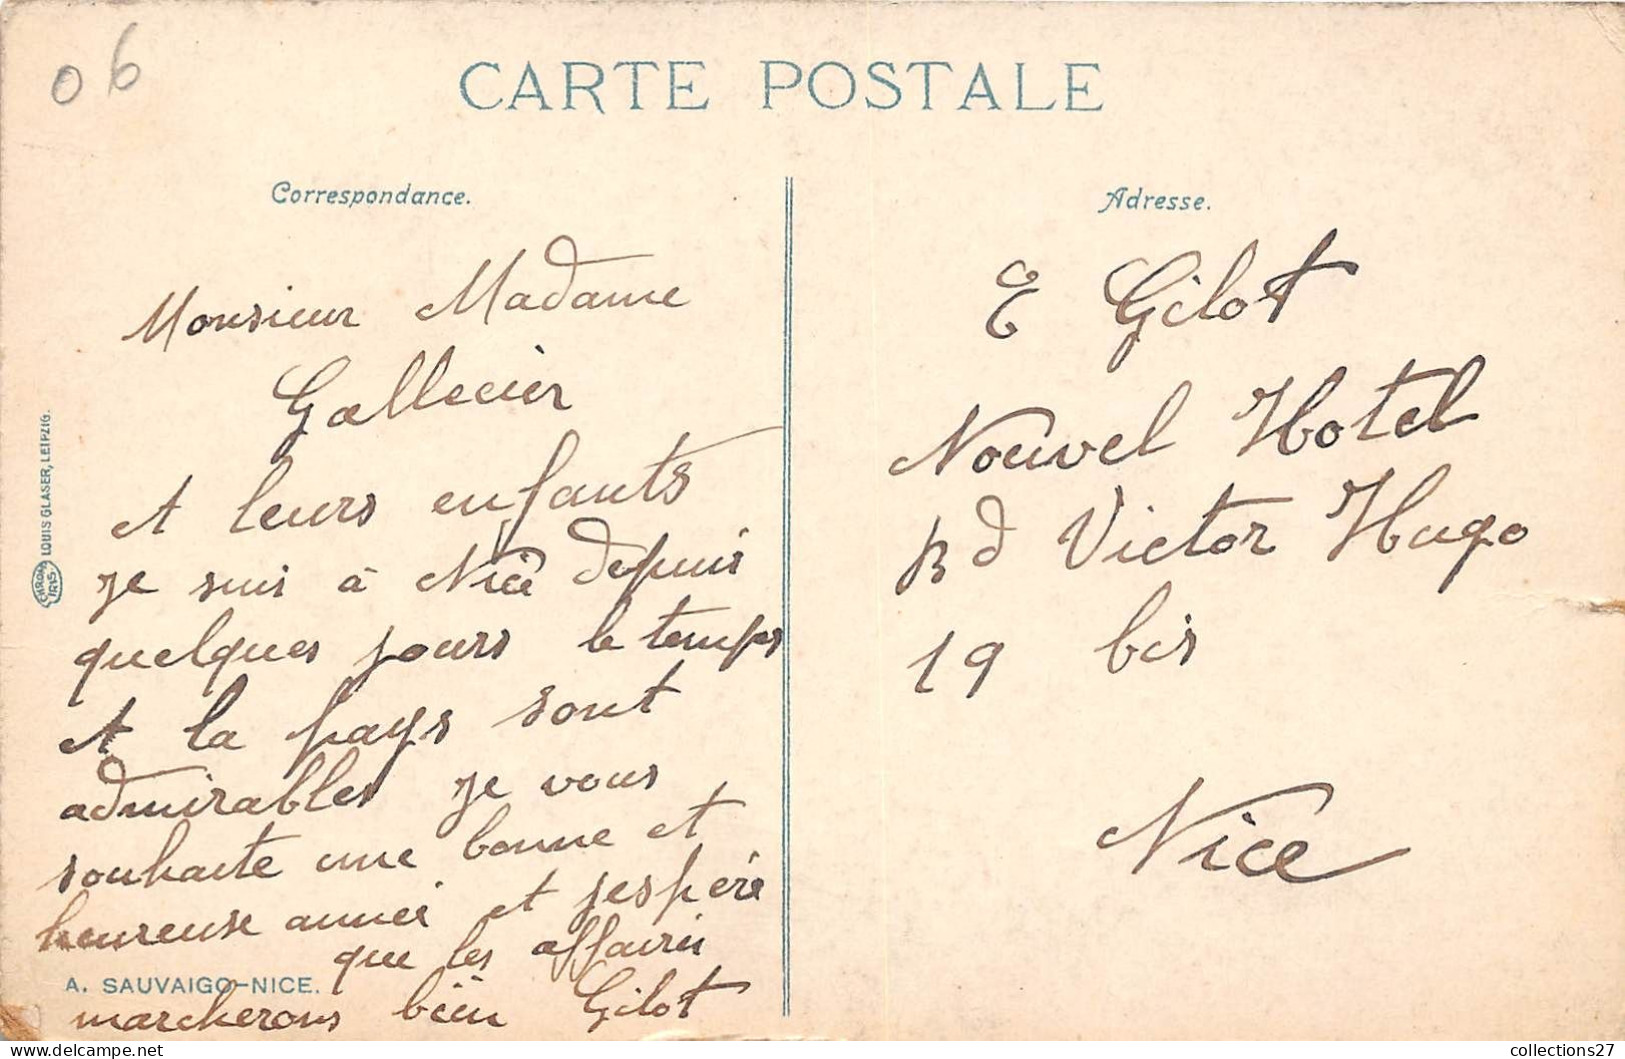 06
CARTE POSTALE
Correspondance.
Monsieur Madame
Gallecier
et leurs enfants
je suis à Nice depuis
quelques jours le temps
et la pays sont
admirables je vous
souhaite une bonne et
heureuse année et jespére
que les affaires
marcherons bien Gilot
A. SAUVAIGO-NICE.
CHROMO IRIS LOUIS GLASER, LEIPZIG.
Adresse.
E Gilot
Nouvel Hotel
Bd Victor Hugo
19 bis
Nice
collections27